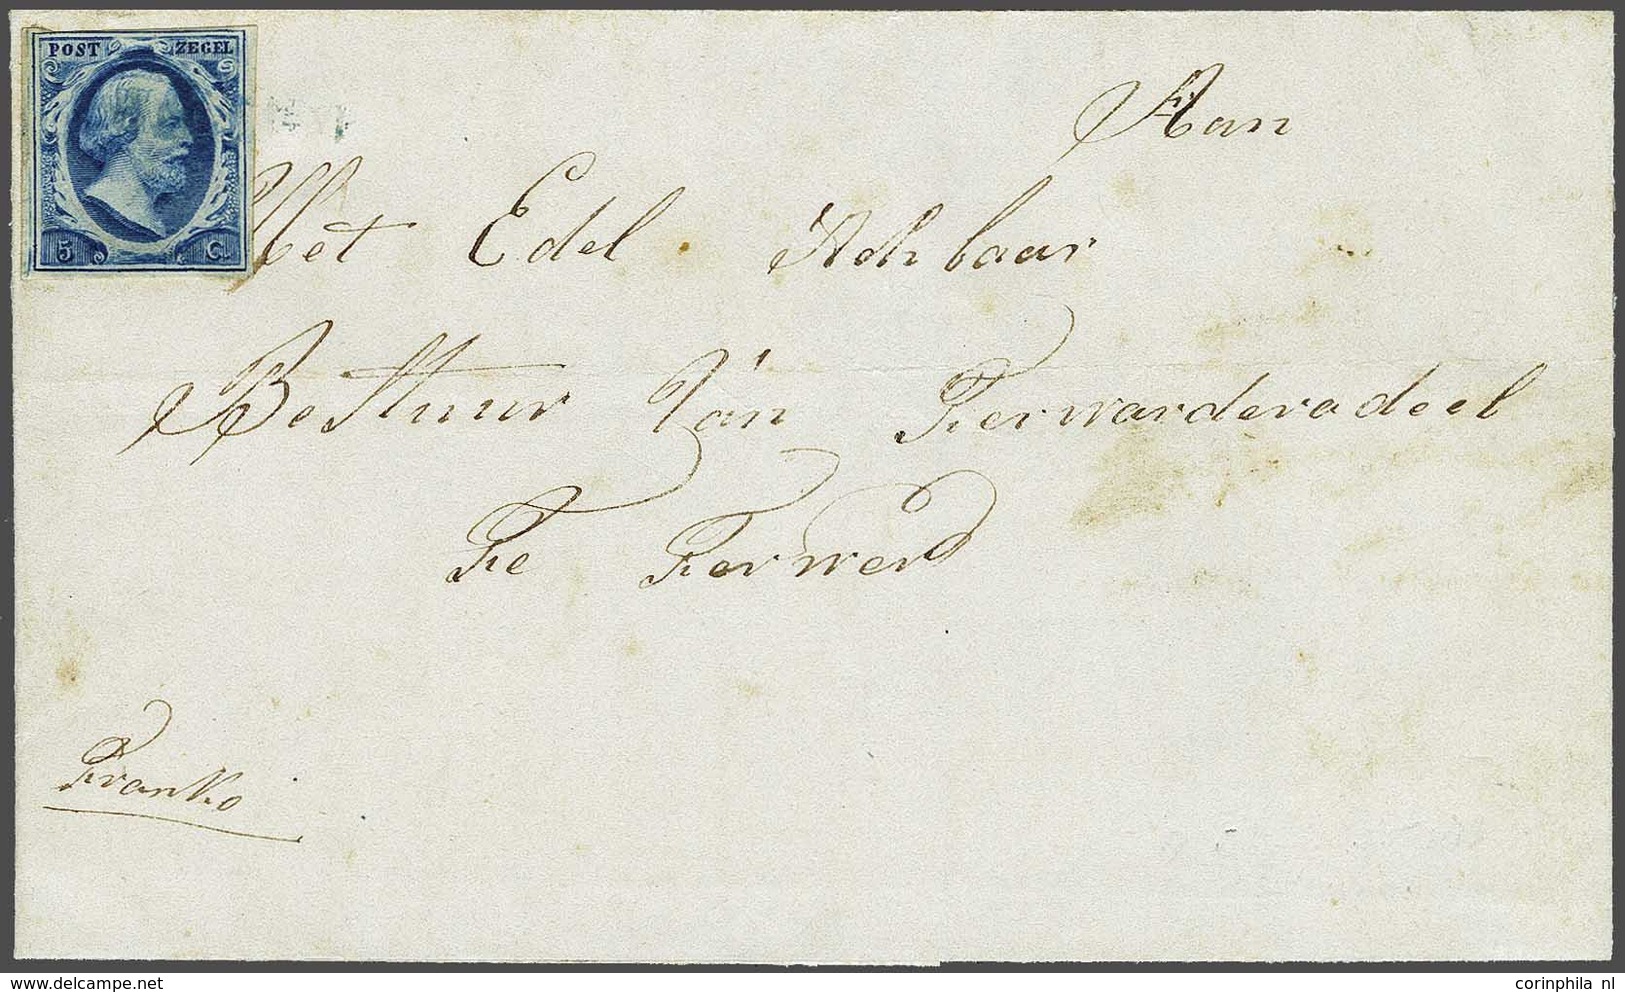 POST ZEGEL
5 C.
Aan
Het Edel Achbaar
Bestuur Van Ferwarderadeel
Te Ferwerd
Franko
corinphila nl